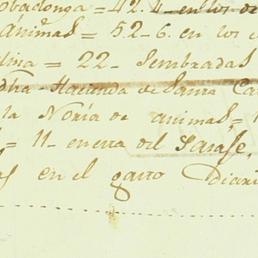 obadonga = 42.4 en los de
animas = 52-6. en los
lina = 22 - Sembradas
otra - Hacienda de Santa Ca
la Noria de animas =
= 11 - en era del Sarase,
as en el gasto Diari